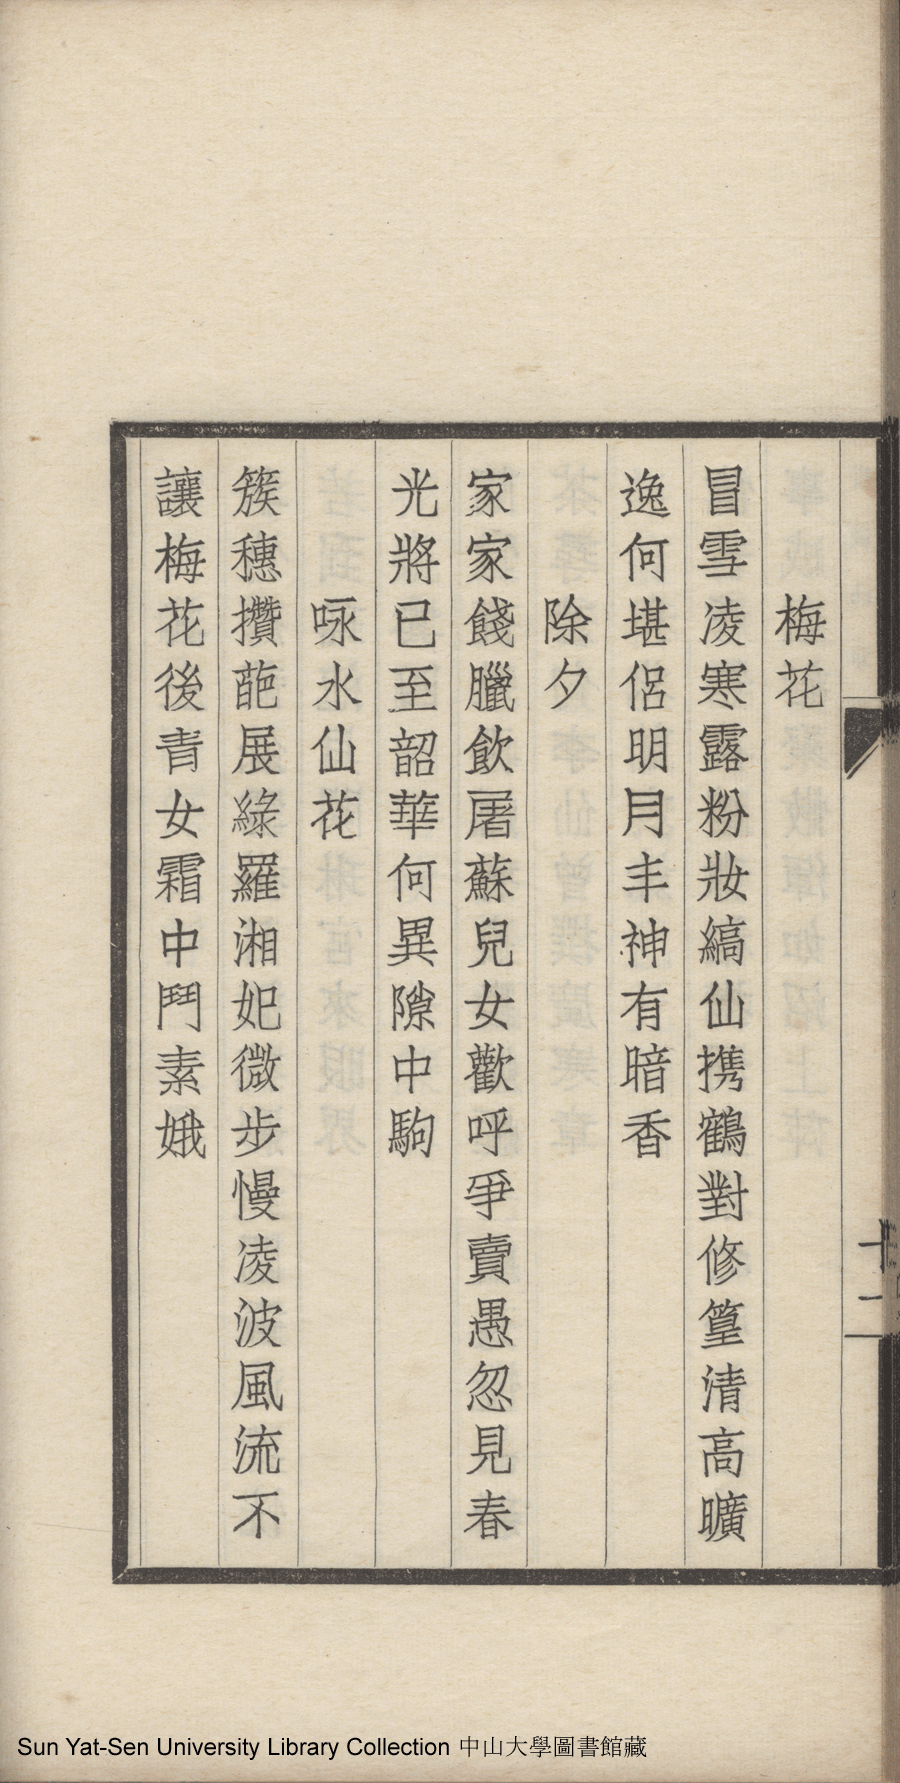 梅花
冒雪凌寒露粉妝縞仙携鶴對修篁清高曠
逸何堪侶明月丰神有暗香
除夕
家家餞臘飲屠蘇兒女歡呼爭賣愚忽見春
光將已至韶華何異隙中駒
咏水仙花
簇穗攢葩展綠羅湘妃微步慢凌波風流不
讓梅花後青女霜中鬥素娥
十二
Sun Yat-Sen University Library Collection 中山大學圖書館藏